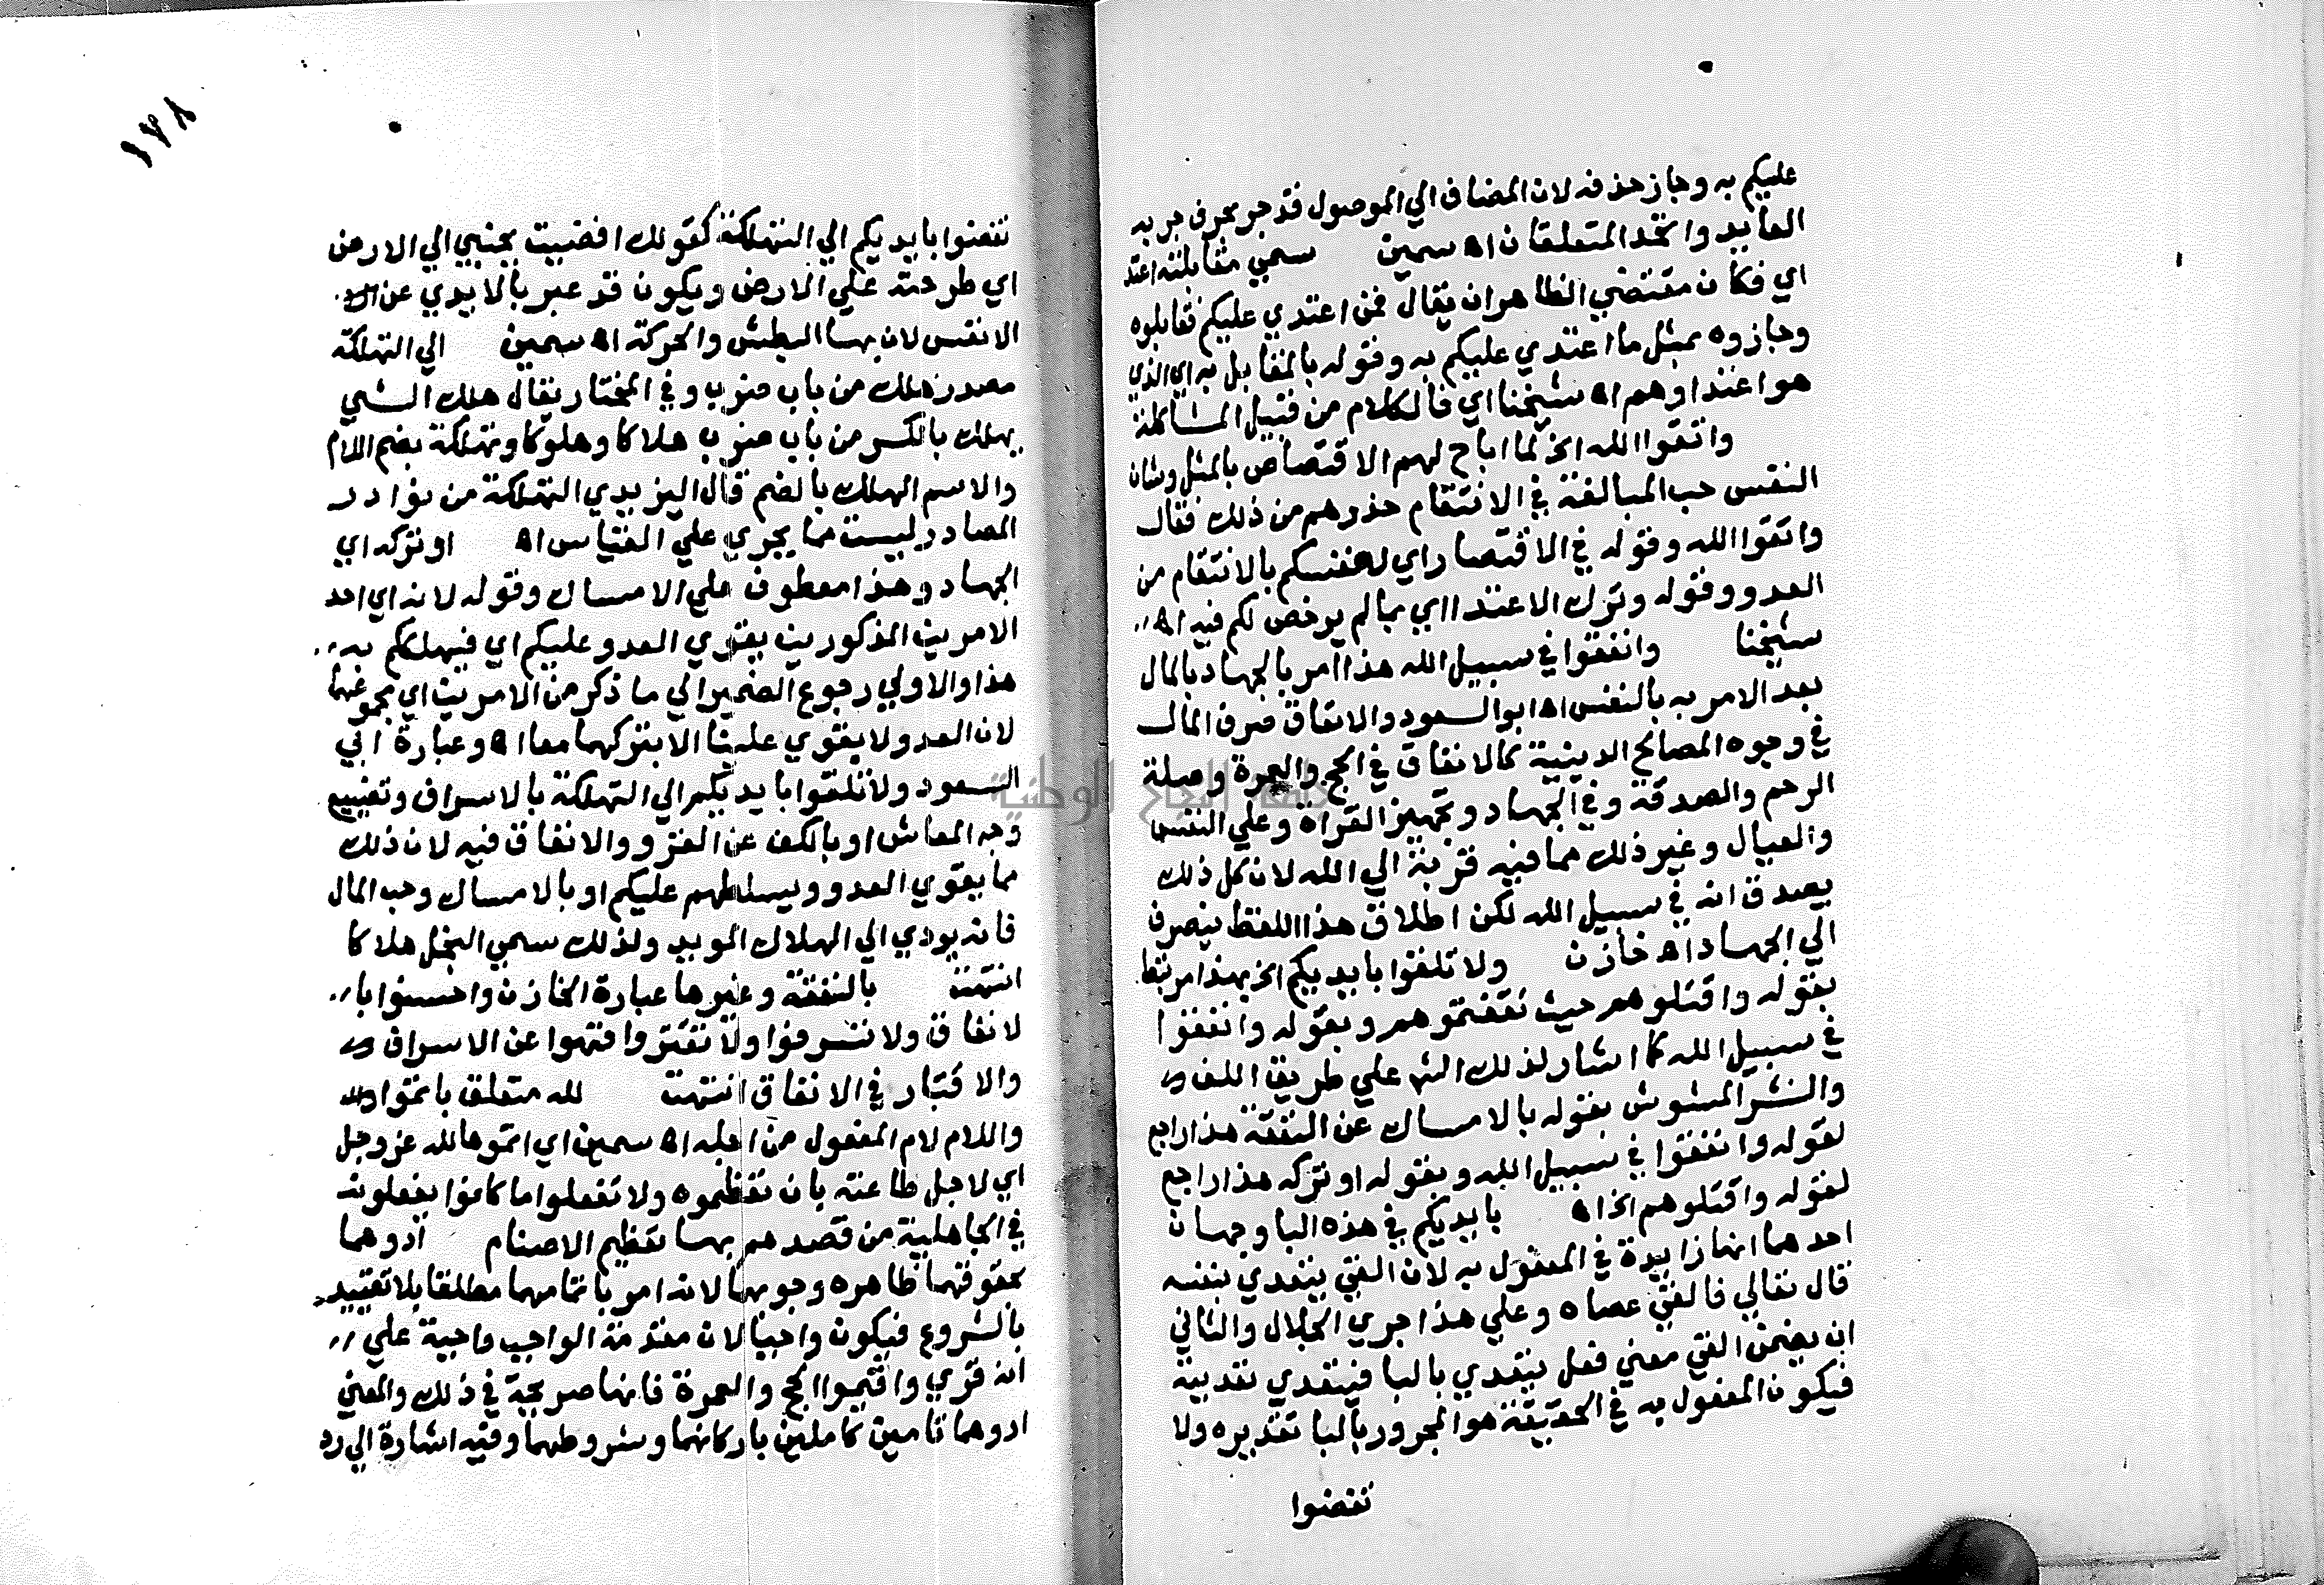 عليكم به وجاز حذفه لان المضاف الي الموصول قد جر بحرف جر به
العايد واتحد المتعلقان اه سمين سمي مقابلته اعتد
اي فكان مقتضي الظاهر ان يقال فمن اعتدي عليكم فقابلوه
وجازوه بمثل ما اعتدي عليكم به وقوله بالمقابل به اي الذي
هو اعتداوهم اه شيخنا اي فالكلام من قبيل المشاكلة
واتقوا الله الخ لما اباح لهم الاقتصاص بالمثل وشان
النفس حب المبالغة في الانتقام حذرهم من ذلك فقال
واتقوا الله وقوله في الاقتصار اي لانفسكم بالانتقام من
العدو وقوله وترك الاعتدا اي بما لم يرخص لكم فيه اه
شيخنا وانفقوا في سبيل الله هذا امر بالجهاد بالمال
بعد الامر به بالنفس اه ابو السعود والانفاق صرف المال
في وجوه المصالح الدينية كالانفاق في الحج والعمرة وصلة
الرحم والصدقة وفي الجهاد وتجهيز الغزاة وعلي النفس
والعيال وغير ذلك مما فيه قربة الي الله لان كل ذلك
يصدق انه في سبيل الله لكن اطلاق هذا اللفظ ينصرف
الي الجهاد اه خازن ولا تلقوا بايديكم الخ بهذا مرتبط
بقوله واقتلوهم حيث ثقفتموهم وبقوله وانفقوا
في سبيل الله كما اشار لذلك الش علي طريق اللف و
والنشر المشوش بقوله بالامساك عن النفقة هذا راجع
لقوله وانفقوا في سبيل الله وبقوله او تركه هذا راجع
لقوله واقتلوهم الخ اه بايديكم في هذه البا وجهان
احدهما انها زايدة في المفعول به لان القي يتعدي بنفسه
قال تعالي فالقي عصاه وعلي هذا جري الجلال والثاني
ان يضمن القي معني فعل يتعدي بالبا فيتعدي تعديته
فيكون المفعول به في الحقيقة هو المجرور بالبا تقديره ولا
تفضوا
١٧٨
تفضوا بايديكم الي التهلكة كقولك افضيت بجنبي الي الارض
اي طرحته علي الارض ويكون قد عبر بالايدي عن
الانفس لان بها البطش والحركة اه سمين الي التهلكة
مصدر هلك من باب ضرب وفي المختار يقال هلك الشي
يهلك بالكسر من باب ضرب هلاكا وهلوكا وتهلكة بضم اللام
والاسم الهلك بالضم قال اليزيدي التهلكة من نوادر
المصادر ليست مما يجري علي القياس اه او تركه اي
الجهاد وهذا معطوف علي الامساك وقوله لانه اي احد
الامرين المذكورين يقوي العدو عليكم اي فيهلككم به
هذا والاولي رجوع الضمير الي ما ذكر من الامرين اي مجموعهما
لان العدو لا يقوي علينا الا بتركهما معا اه وعبارة ابي
السعود ولا تلقوا بايديكم الي التهلكة بالاسراف وتضييع
وجه المعاش او بالكف عن الغزو والانفاق فيه لان ذلك
مما يقوي العدو ويسلطهم عليكم او بالامساك وحب المال
فانه يودي الي الهلاك الموبد ولذلك سمي البخل هلاكا
انتهت بالنفقة وغيرها عبارة الخازن واحسنوا با
لانفاق ولا تسرفوا ولا تقتروا فنهوا عن الاسراف و
والاقتار في الانفاق انتهت لله متعلق باتموا
واللام لام المفعول من اجله اه سمين اي اتموها لله عز وجل
اي لاجل طاعته بان تعظموه ولا تفعلوا ما كانوا يفعلونه
في الجاهلية من قصدهم بها تعظيم الاصنام ادوهما
بحقوقهما ظاهره وجوبها لانه امر باتمامهما مطلقا بلا تقييد
بالشروع فيكون واجبا لان مقدمة الواجب واجبة علي
انه قري واقيموا الحج والعمرة فانها صريحة في ذلك والمعني
ادوهما تامين كاملين باركانهما وشروطهما وفيه اشارة الي رد